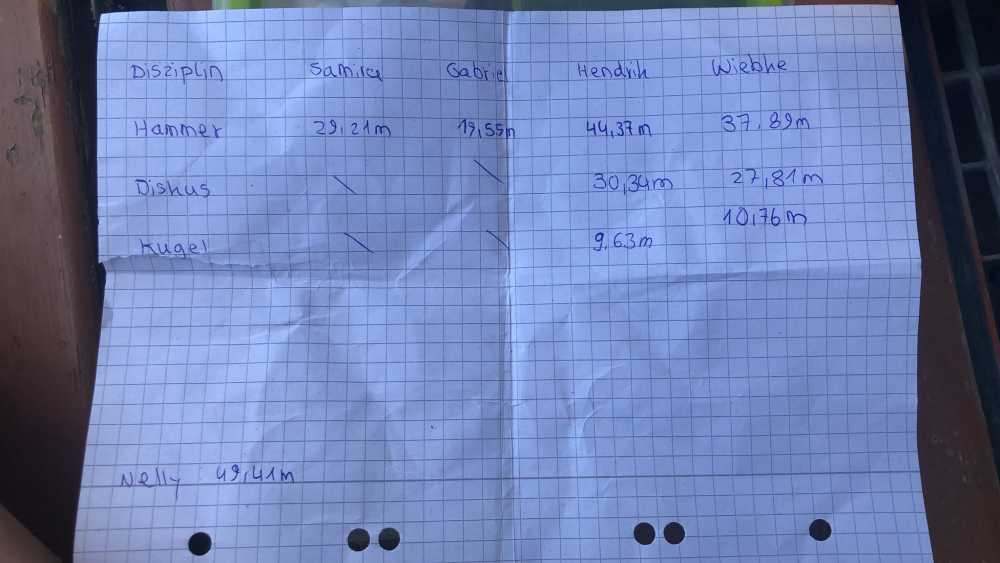 Disziplin Samira Gabriel Hendrik Wiebke
Hammer 29,21m 19,55m 44,37m 37,89m
Diskus \ \ 30,34m 27,81m
Kugel \ \ 9,63m 10,76m
Nelly 49,41m